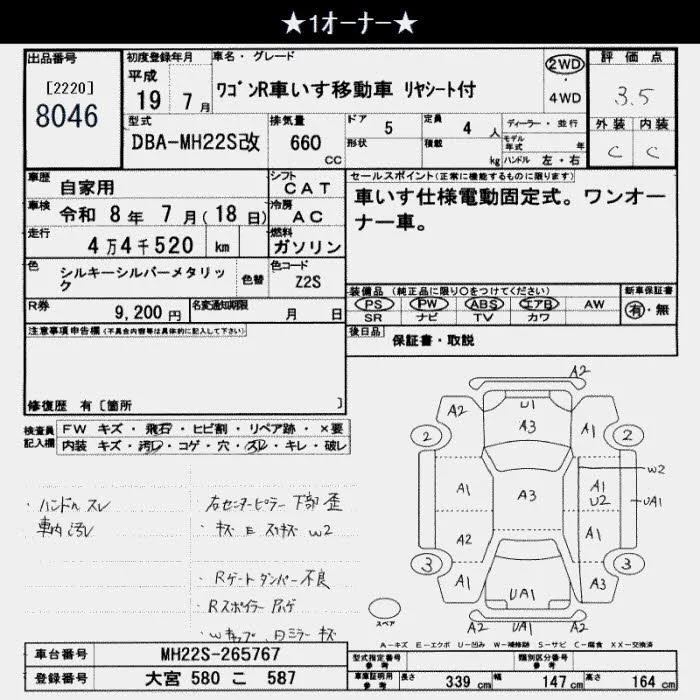 ★1ｵｰﾅｰ★
出品番号
[2220]
8046
初度登録年月
平成
19 7月
車名・グレード
ﾜｺﾞﾝR車いす移動車 ﾘﾔｼｰﾄ付
2WD
4WD
評価点
3.5
外装 内装
C C
型式
DBA-MH22S改
排気量
660 CC
ドア 5
形状
定員 4 人
積載 kg
ディーラー・並行
モデル年式 年
ハンドル 左・右
車歴
自家用
シフト
CAT
車検
令和 8年 7月(18日)
冷房
AC
走行
4万4千520 km
燃料
ガソリン
色
シルキーシルバーメタリック
色替
色コード
Z2S
R券
9,200円
名変通知期限
月 日
セールスポイント(正常に機能するものに限ります)
車いす仕様電動固定式。ワンオーナー車。
装備品(純正品に限り○をつけてください)
PS PW ABS エアB AW
SR ナビ TV カワ
新車保証書
有・無
後日品
保証書・取説
注意事項申告欄(不具合内容等は具体的に記入して下さい)
修復歴 有[箇所 ]
検査員記入欄
FW キズ・飛石・ヒビ割・リペア跡・×要
内装 キズ・汚レ・コゲ・穴・スレ・キレ・破レ
・ハンドル スレ
車内 汚レ
・右センターピラー 下部 歪
・キズ E スリキズ W2
・Rゲートダンパー不良
・Rスポイラー
・Wキャップ
ミラー キズ
A2
A2 U1 A1
2 A3 2
W2
A1 A3 A1
U2
UA1
A2 A1
3 3
A1 UA1 A3
A2 UA1 A2
スペア
A-キズ E-エクボ U-凹み W-補修跡 S-サビ C-腐食 XX-交換済
車台番号
MH22S-265767
登録番号
大宮 580 こ 587
型式指定番号
参考
類別区分番号
参考
車庫証明用
参考
長さ 339 cm
幅 147 cm
高さ 164 cm